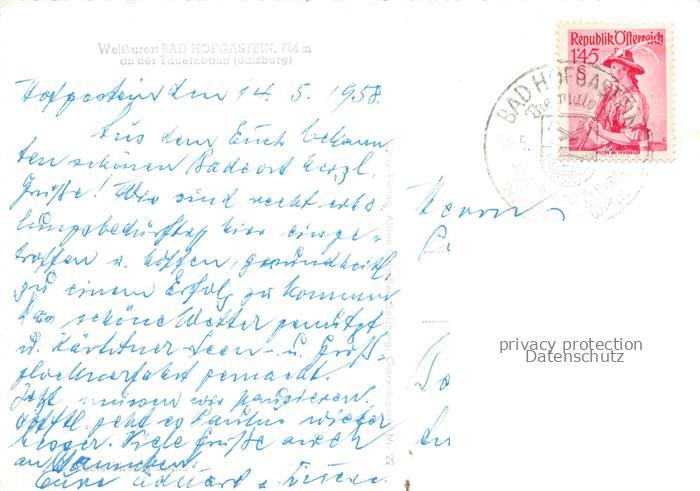 Weltkurort BAD HOFGASTEIN, 864 m
an der Tauernbahn (Salzburg)
Hofgastein den 14. 5. 1958.
Aus dem Euch bekann-
ten schönen Badeort herzl.
Grüße! Wir sind recht erho-
lungsbedürftig hier einge-
troffen u. hoffen, gesundheitl.
zu einem Erfolg zu kommen.
Das schöne Wetter genützt
u. Kärntner Seen- u. Groß-
glocknerfahrt gemacht.
Jetzt müssen wir pausieren.
Hofftl. geht es Paulus wieder
besser. Viele Grüße auch
an
Eure Eduard
Republik Österreich
1'45
S
BAD HOFGASTEIN
Herrn
privacy protection
Datenschutz